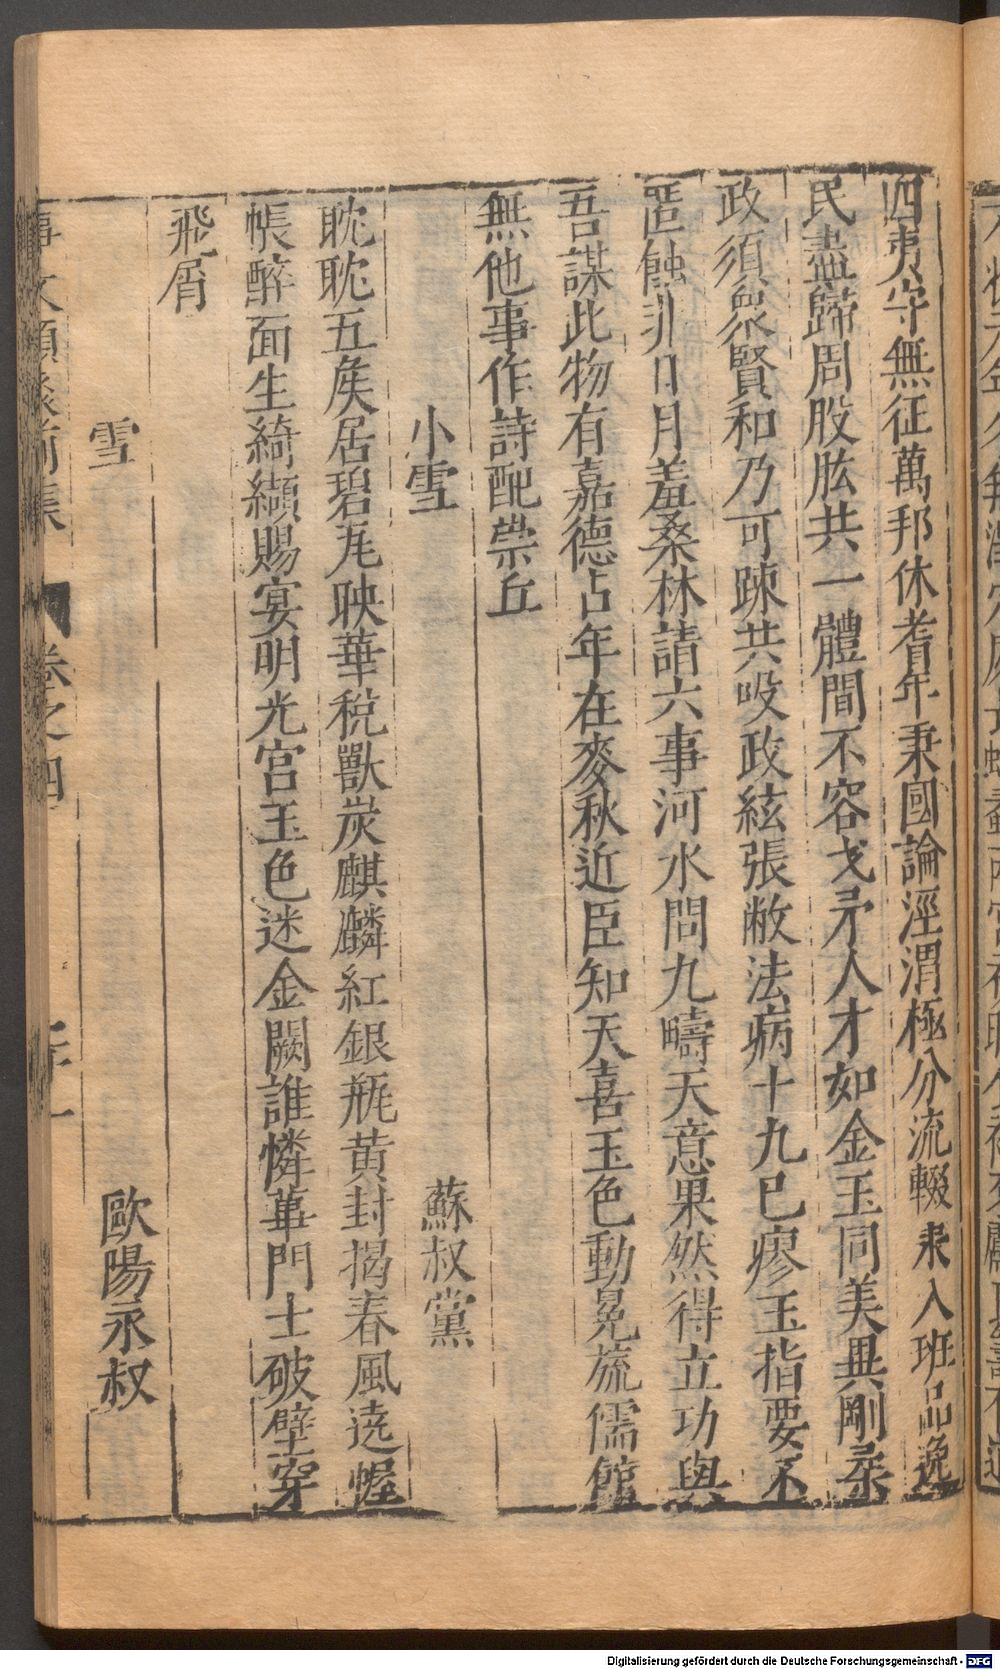 四夷守無征萬邦休耆年秉國論涇渭極分流輟耒入班品逸
民盡歸周股肱共一體間不容戈矛人才如金玉同美異剛柔
政須眾賢和乃可踈共吺政絃張敝法病十九已瘳玉指要不
匿蝕非日月羞桑林請六事河水問九疇天意果然得立功與
吾謀此物有嘉德占年在麥秋近臣知天喜玉色動冕旒儒館
無他事作詩配崇丘
小雪 蘇叔黨
耽耽五矦居碧瓦映華稅獸炭麒麟紅銀瓶黄封揭春風遶幄
帳醉面生綺纈賜宴明光宮玉色迷金闕誰憐蓽門士破壁穿
飛屑
雪 歐陽永叔
事文類聚前集 卷之四